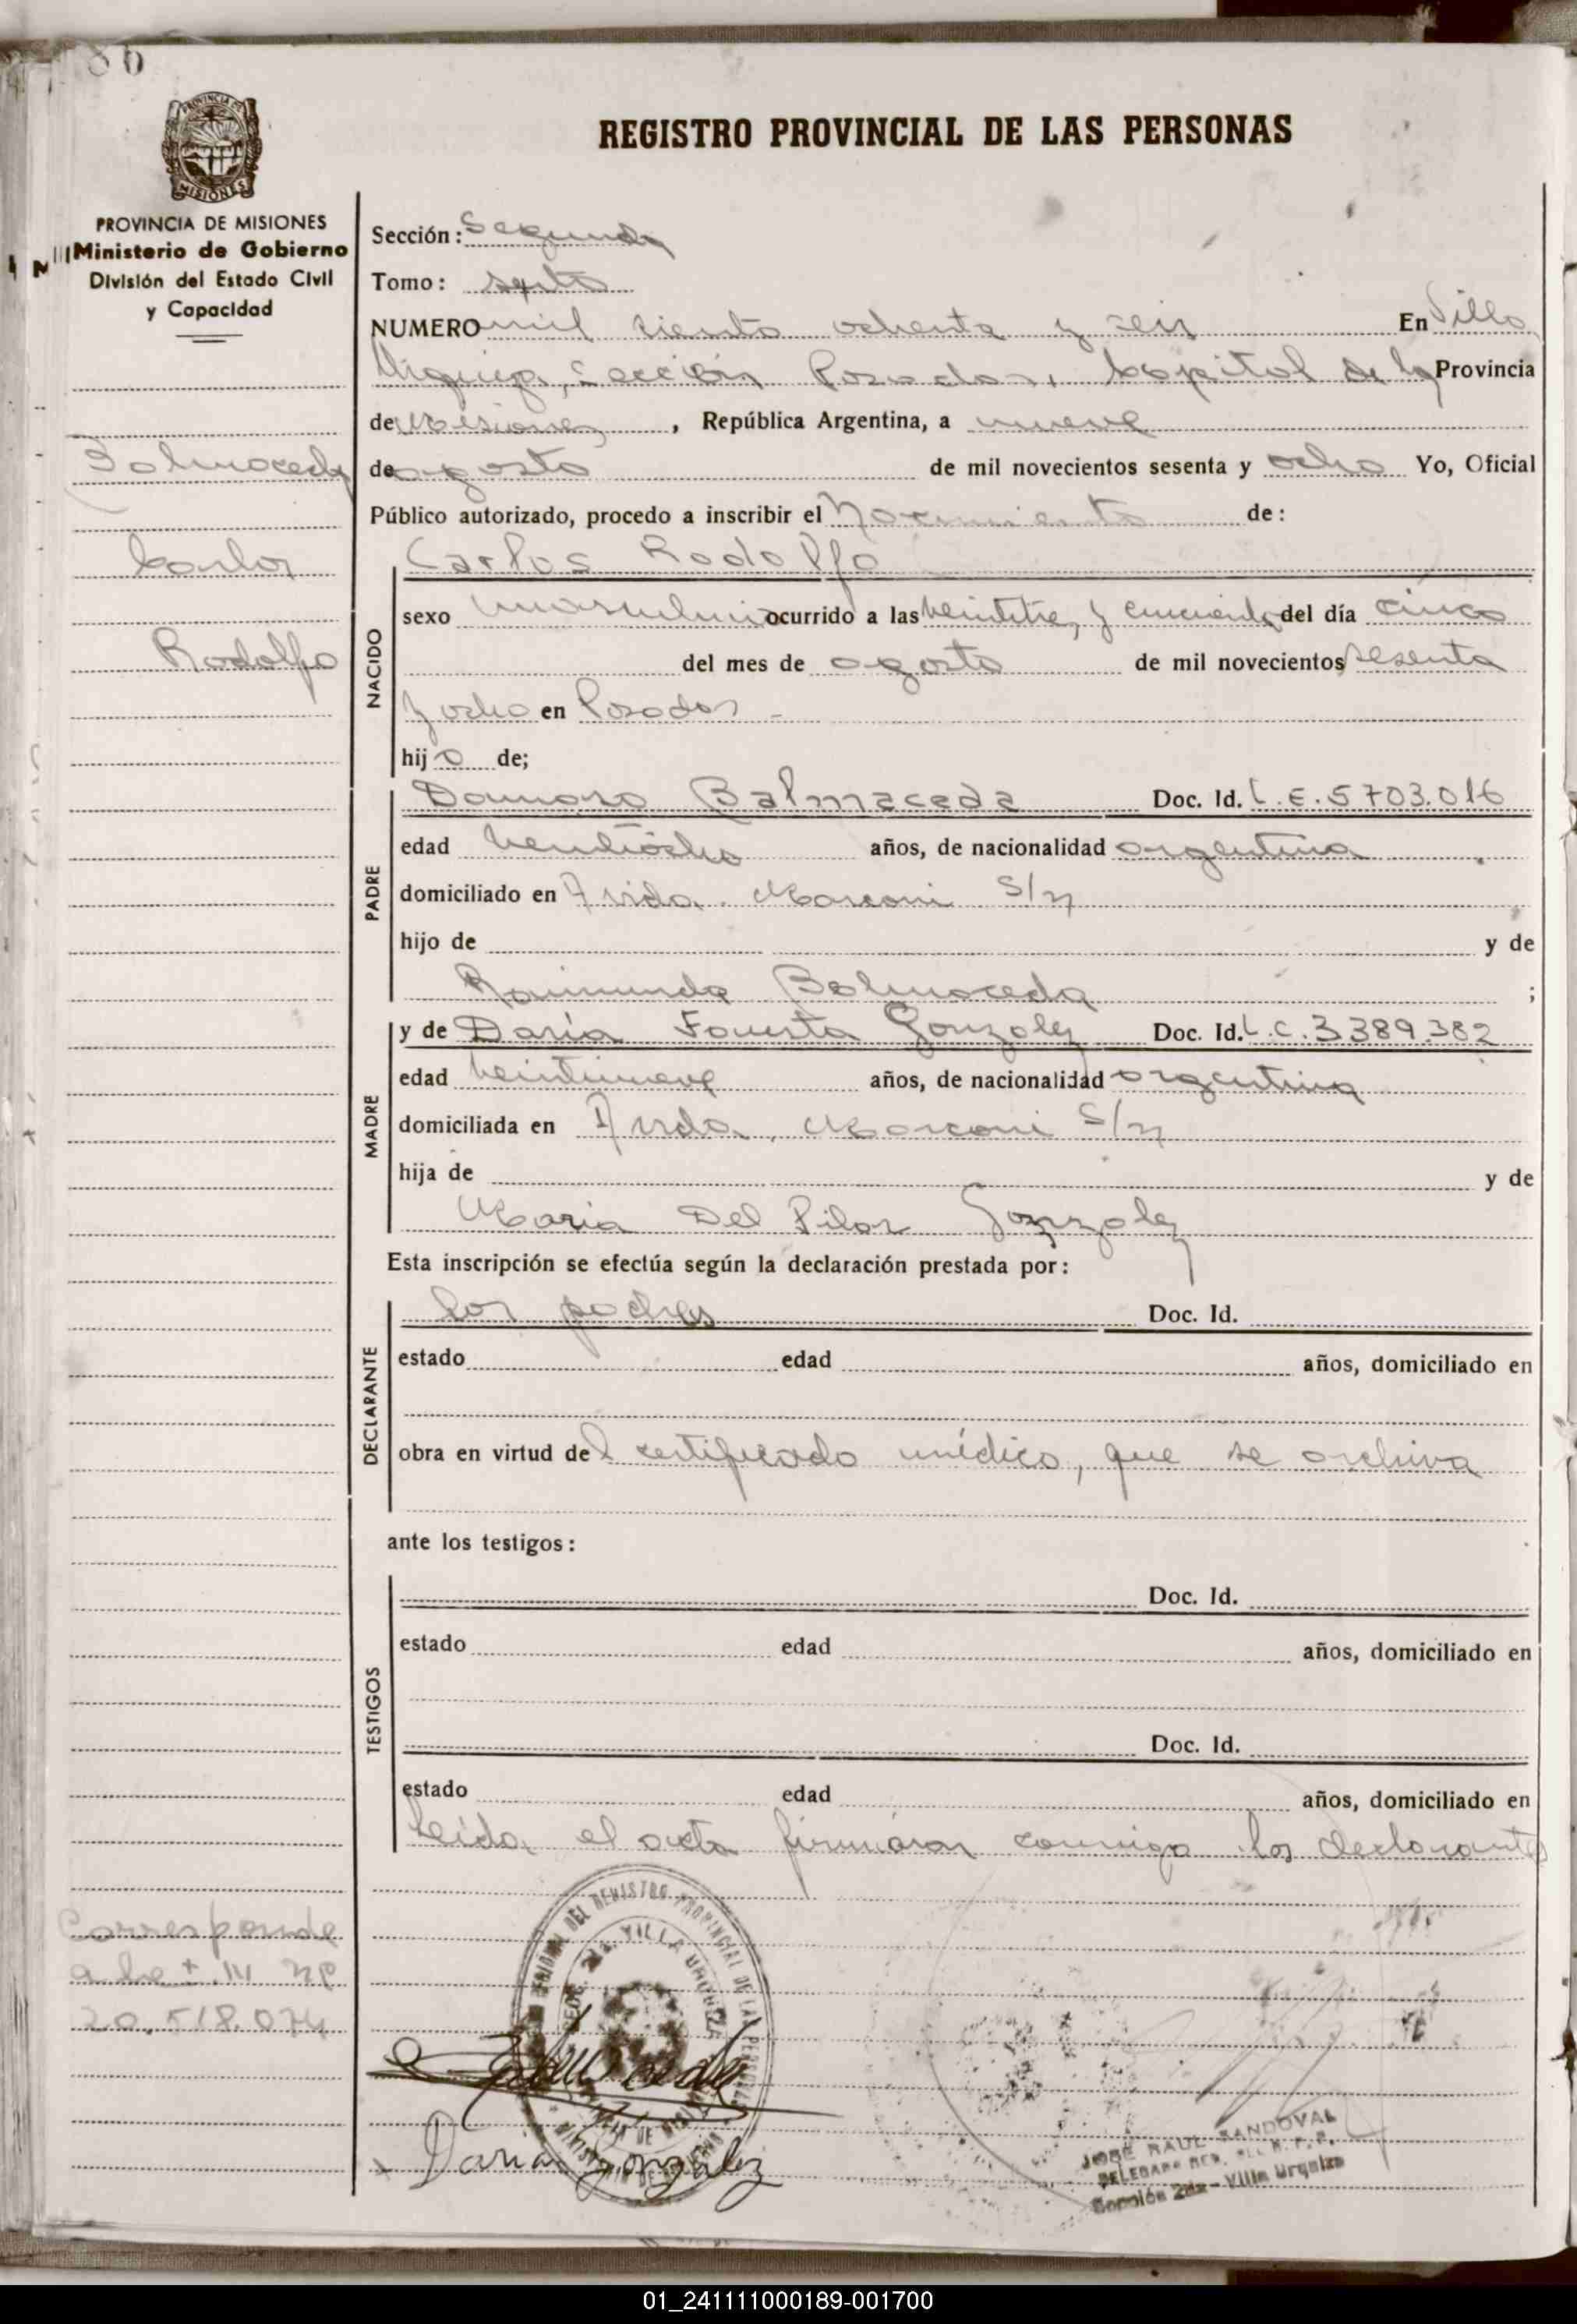 86
PROVINCIA DE MISIONES
Ministerio de Gobierno
División del Estado Civil
y Capacidad
REGISTRO PROVINCIAL DE LAS PERSONAS
Sección: Segunda
Tomo: sexto
NUMERO mil ciento ochenta y seis En Villa
Urquiza, Sección Posadas, Capital de la Provincia
de Misiones, República Argentina, a nueve
Balmaceda
de agosto de mil novecientos sesenta y ocho Yo, Oficial
Público autorizado, procedo a inscribir el Nacimiento de:
Carlos
Carlos Rodolfo
NACIDO
sexo masculino ocurrido a las veintitres y cincuenta del día cinco
Rodolfo
del mes de agosto de mil novecientos sesenta
y ocho en Posadas -
hijo de;
PADRE
Damaso Balmaceda Doc. Id. L.E. 5703.016
edad veintiocho años, de nacionalidad argentina
domiciliado en Avda. Marconi S/n
hijo de y de
Raimunda Balmaceda ;
MADRE
y de Daria Fausta Gonzalez Doc. Id. L.C. 3389.382
edad veintinueve años, de nacionalidad argentina
domiciliada en Avda. Marconi S/n
hija de y de
Maria Del Pilar Gonzalez
Esta inscripción se efectúa según la declaración prestada por:
DECLARANTE
los padres Doc. Id.
estado edad años, domiciliado en
obra en virtud del certificado médico, que se archiva
ante los testigos:
TESTIGOS
Doc. Id.
estado edad años, domiciliado en
Doc. Id.
estado edad años, domiciliado en
Leida el acta firmaron conmigo los declarantes
Corresponde
20.518.074
DEL REGISTRO PROVINCIAL DE LAS PERSONAS
SECC. 2da. VILLA URQUIZA
Balmaceda
Daria González
JOSE RAUL SANDOVAL
Sección 2da - Villa Urquiza
01_241111000189-001700